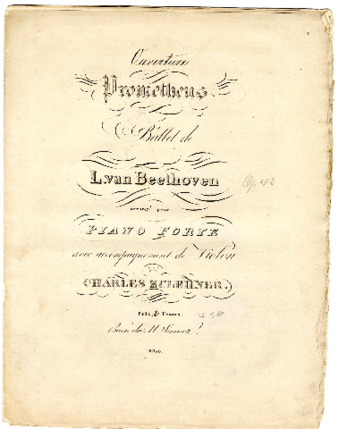 Ouverture
Prometheus
Ballet de
L. van Beethoven
arrangé pour
PIANO FORTE
avec accompagnement de Violon
par
CHARLES ZULEHNER.
Prix, 2 Francs.
Bonn chez N. Simrock.
Op. 43